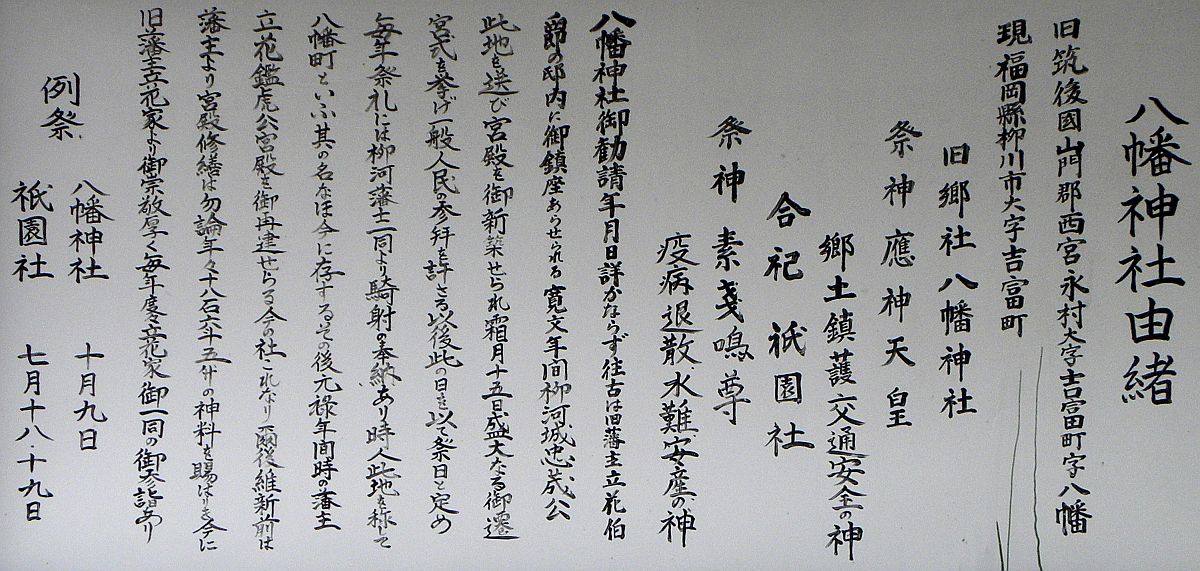 八幡神社由緒
旧筑後國山門郡西宮永村大字吉富町字八幡
現福岡縣柳川市大字吉富町
旧郷社八幡神社
祭神應神天皇
郷土鎮護交通安全の神
合祀祇園社
祭神素戔鳴尊
疫病退散水難安産の神
八幡神社御勧請年月日詳かならず往古は旧藩主立花伯
爵の邸内に御鎮座あらせられる寛文年間柳河城忠茂公
此地を選び宮殿を御新築せられ霜月十五日盛大なる御遷
宮式を挙げ一般人民の参拝を許さる以後此の日を以て祭日と定め
毎年祭礼には柳河藩士一同より騎射の奉納あり時人此地を称して
八幡町といふ其の名なほ今に存するその後元禄年間時の藩主
立花鑑虎公宮殿を御再建せらる今の社これなり爾後維新前は
藩主より宮殿修繕は勿論年々十八石六斗五升の神料を賜はりき今に
旧藩主立花家より御崇敬厚く毎年度々立花家御一同の御参詣あり
例祭
八幡神社 十月九日
祇園社 七月十八・十九日